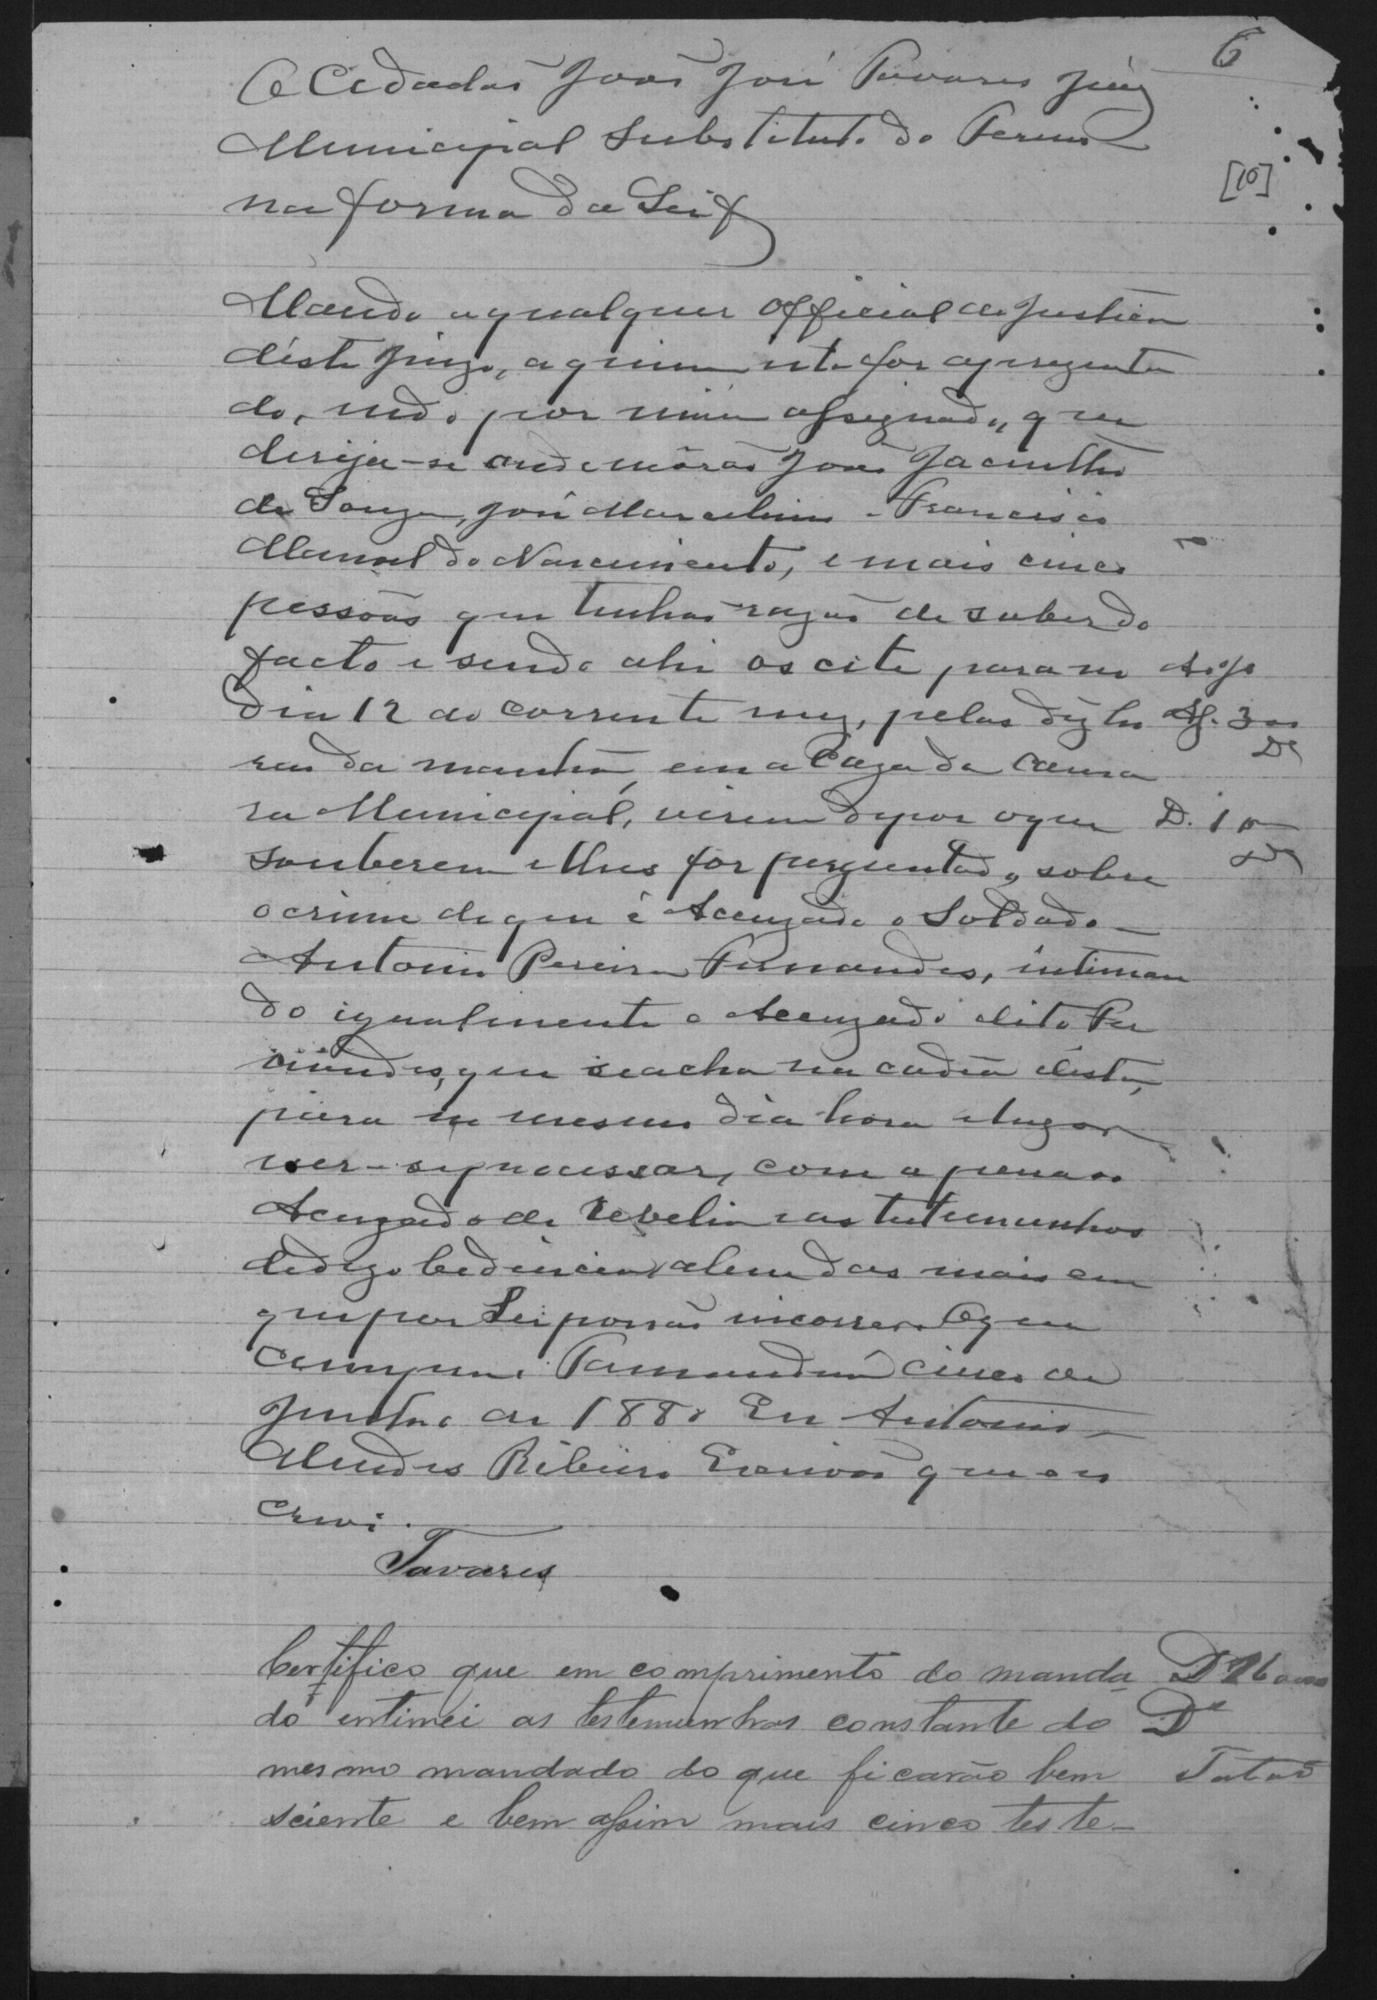 6
O Cidadão João José Tavares Juiz
Municipal Substituto do Termo
na forma da Lei &
[10]
Mando a qualquer official de Justiça
déste Juizo, a quem este for aprezenta
do, indo por mim assignado, que
dirija-se onde môrão João Jacintho
de Souza, José Marcelino e Francisco
Manoel do Nascimento, e mais cinco
pessôas que tenhão razão de saber do
facto e sendo ahi os cite para no
dia 12 do corrente mez, pelas déz ho
ras da manhã, em a Caza da Cama
ra Municipal, virem depor o que
souberem e lhes for perguntado, sobre
o crime de que é Accuzado o Soldado
Antonio Pereira Fernandes, intiman
do igualmente o Accuzado dito Fer
nandes, que se acha na cadêa désta,
para no mesmo dia hora e lugar
ver-se processar, com a pena o
Accuzado de revelia e as testemunhas
de dezobediencia alem das mais em
que por Lei possão incorrer. O que
cumpra. Tamanduá cinco de
Junho de 1880 Eu Antonio
Mendes Ribeiro Escrivão que o es
crevi.
Tavares
D. 1
Certifico que em comprimento do manda
do intimei as testemunhas constante do
mesmo mandado do que ficarão bem
sciente e bem assim mais cinco teste-